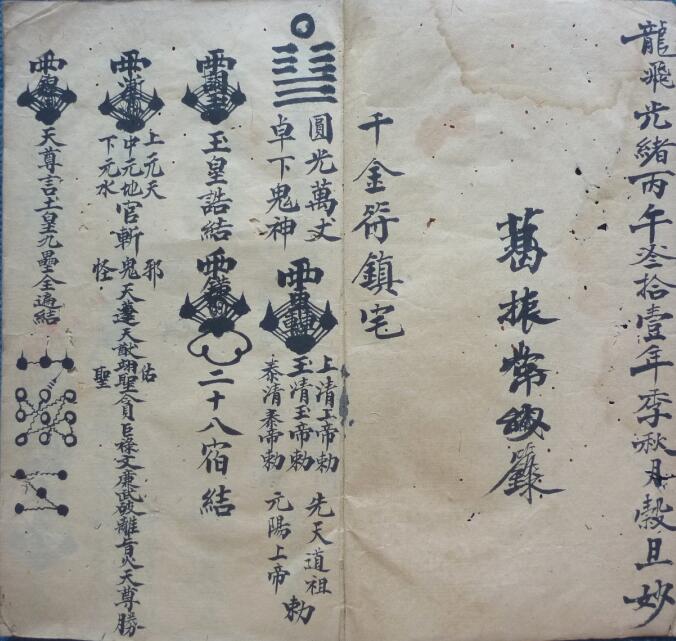 龍飛光緒丙午叁拾壹年季秋月榖旦妙
葛振常
千金符鎮宅
圓光萬丈
卓下鬼神
上清上帝勅
玉清玉帝勅
泰清泰帝勅
先天道祖
元陽上帝
勅
玉皇誥結
二十八宿結
上元天
中元地官斬鬼天蓬天猷翊聖貪巨祿文廉武破離㫖火天尊勝
下元水
邪
怪
佑
聖
天尊言土皇九壘全遍結